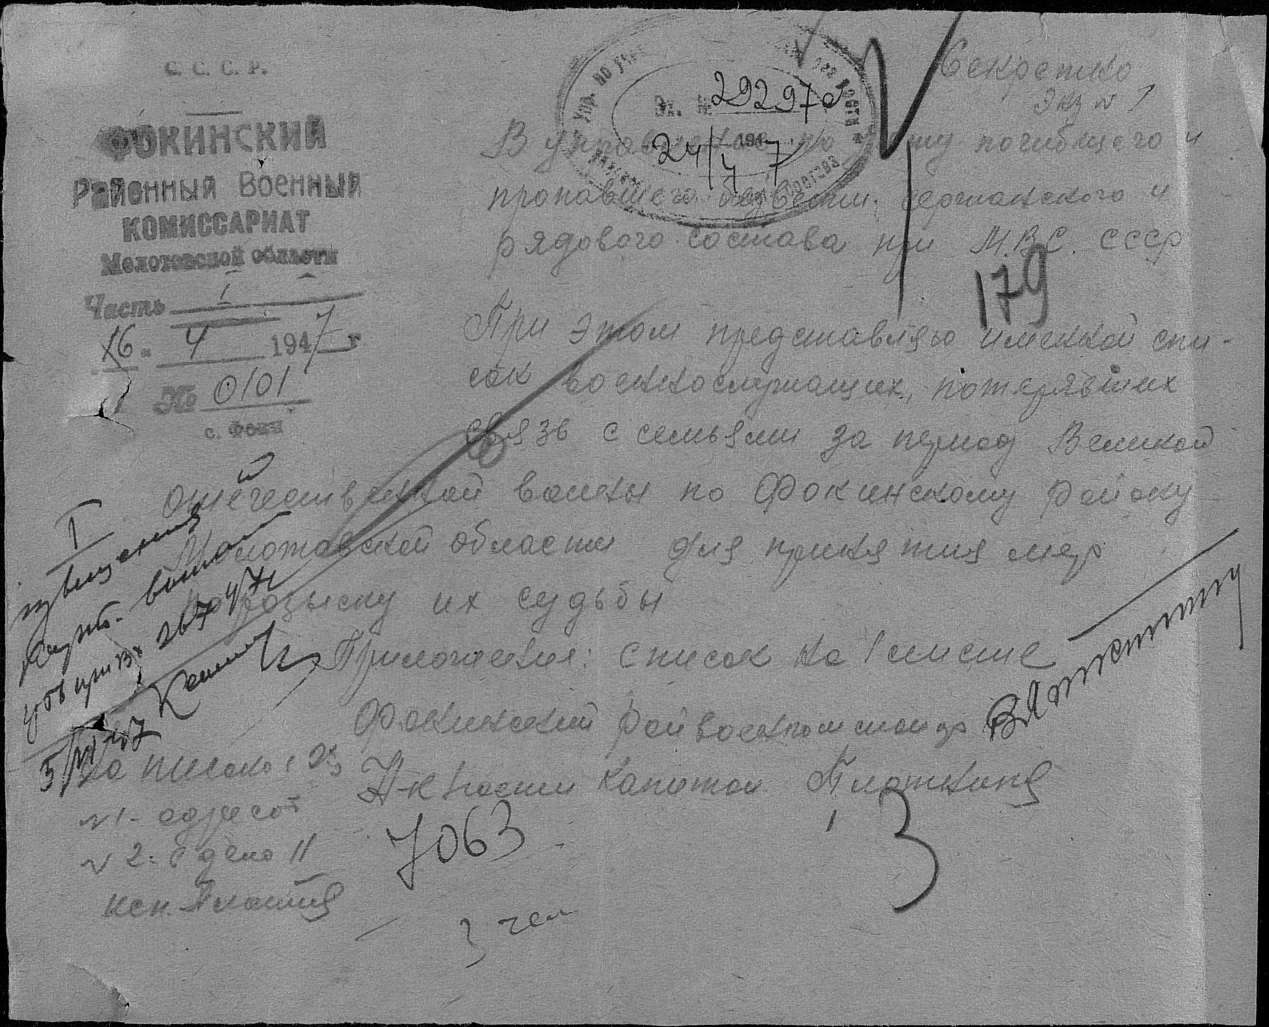 С. С. С. Р.
ФОКИНСКИЙ
Районный Военный
КОМИССАРИАТ
Молотовской области
Часть I
16 " 4 1947 г
№ 0101
с. Фоки
Вх. № 29297с
24/4 1947
Секретно
Экз № 1
В управление по учету погибшего и
пропавшего безвести сержанского и
рядового состава при М.В.С. СССР
179
При этом представляю именной спи-
сок военнослужащих, потерявших
связь с семьями за период Великой
отечественной войны по Фокинскому району
Молотовской области для принятия мер
по розыску их судьбы
Приложения: список на 1 листе
Фокинский райвоенком майор
Н-к 1 части капитан Платкина
I
извещения
5/VI 47
Отписано 2 экз
№ 1 - адресат
№ 2 - в дело 11
исп.
7063
3
3 чел